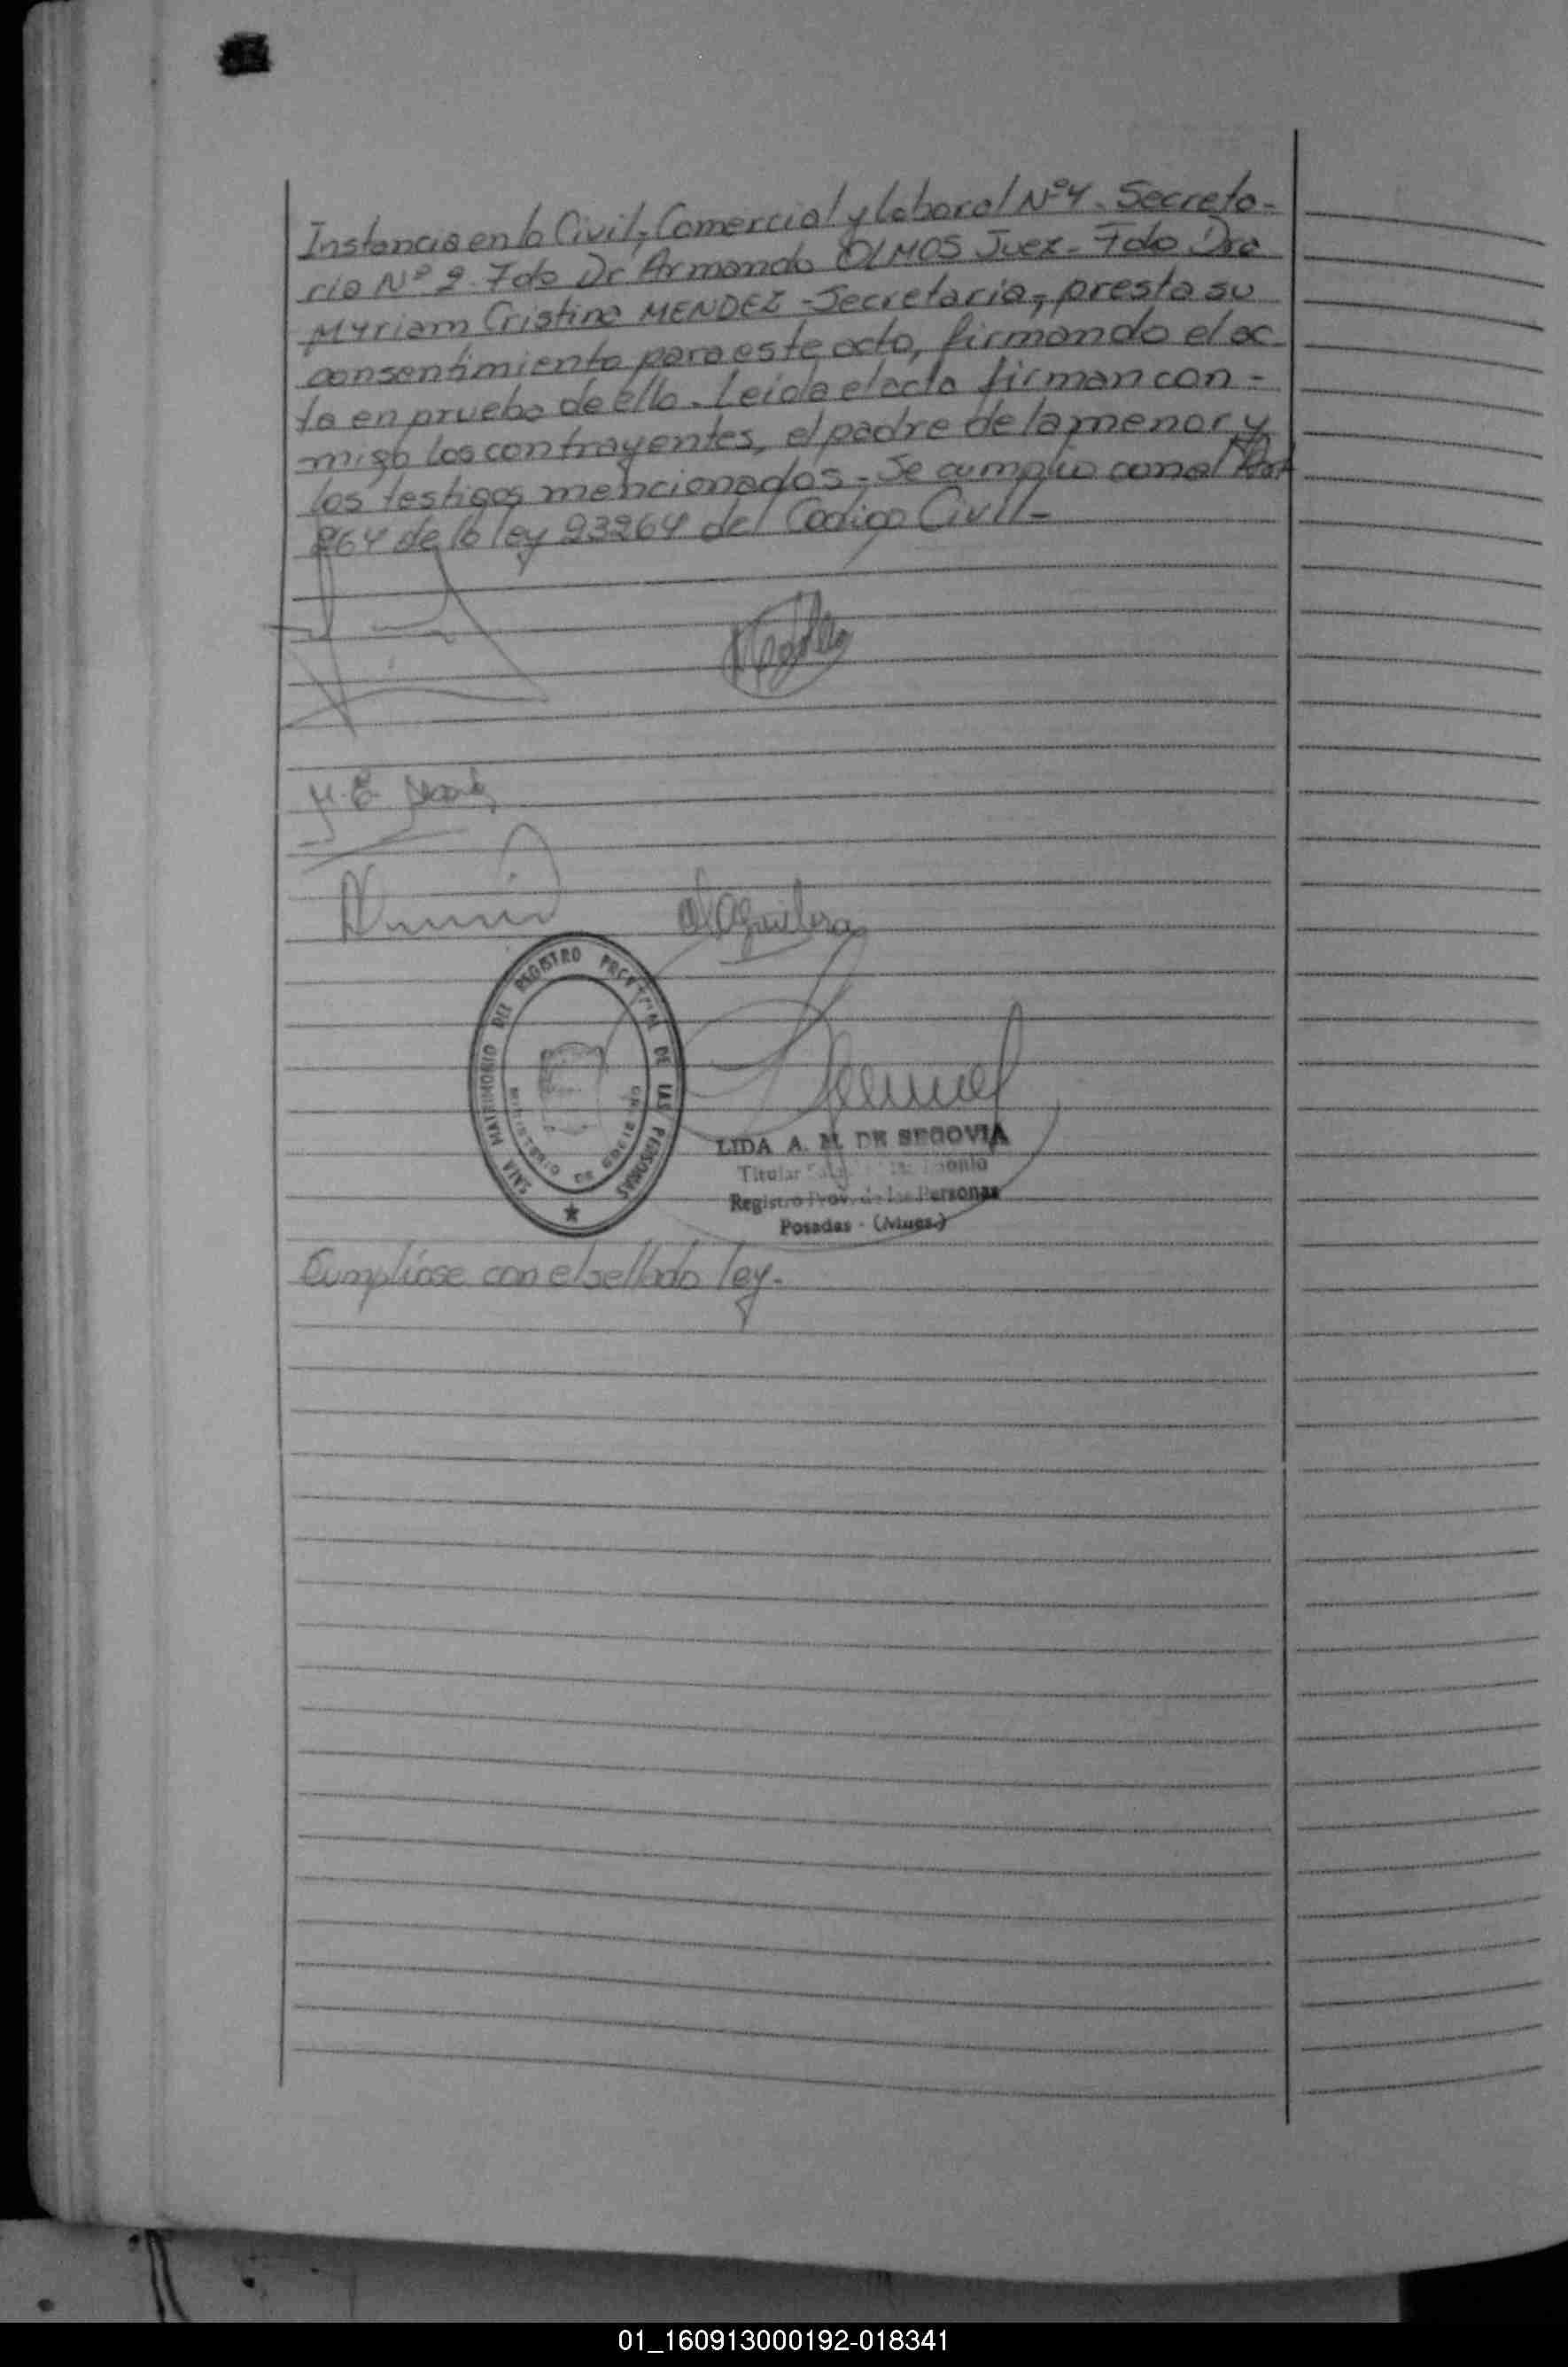 Instancia en lo Civil, Comercial y laboral Nº4. Secreta-
ria Nº 2. Fdo Dr Armando OLMOS Juez - Fdo Dra
Myriam Cristina MENDEZ - Secretaria, presta su
consentimiento para este acto, firmando el ac
ta en prueba de ello. Leida el acta firman con -
migo los contrayentes, el padre de la menor y
los testigos mencionados - Se cumplio con el Art
264 de la ley 23264 del Codigo Civil -
M. E.
Aguilera
SALA MATRIMONIO DEL REGISTRO PROVINCIAL DE LAS PERSONAS
MINISTERIO DE GOBIERNO
LIDA A. M. DE SEGOVIA
Titular
Registro Prov. de las Personas
Posadas - (Mnes.)
Cumpliose con el sellado ley.
01_160913000192-018341